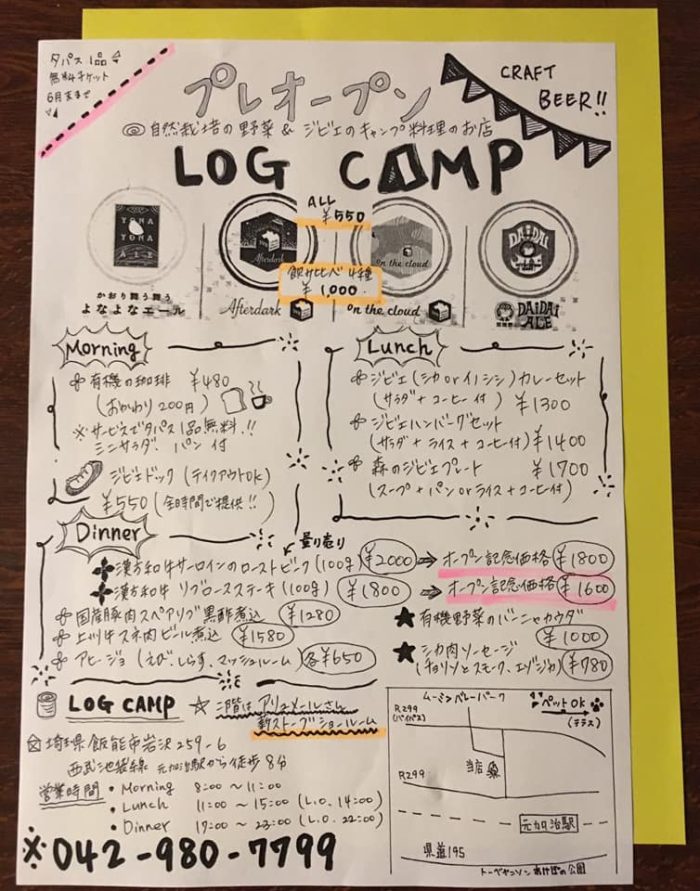 タパス1品
無料チケット
6月末まで
プレオープン
CRAFT
BEER!!
◎自然栽培の野菜 & ジビエのキャンプ料理のお店
LOG CAMP
ALL
¥550
飲み比べ 4種
¥1,000.
YONA
YONA
ALE
かおり舞う舞う
よなよなエール
Afterdark
Afterdark
on the cloud
on the cloud
DAIDAI
DAIDAI
ALE
Morning
有機の珈琲 ¥480
(おかわり200円)
※サービスでタパス1品無料!!
ミニサラダ、パン付
ジビエドック(テイクアウトOK)
¥550(全時間で提供!!)
Lunch
ジビエ(シカorイノシシ)カレーセット
(サラダ+コーヒー付) ¥1300
ジビエハンバーグセット
(サラダ+ライス+コーヒー付) ¥1400
森のジビエプレート ¥1700
(スープ+パンorライス+コーヒー付)
Dinner
量り売り
漢方和牛サーロインのローストビーフ(100g) ¥2000 ⇒ オープン記念価格 ¥1800
漢方和牛 リブロースステーキ(100g) ¥1800 ⇒ オープン記念価格 ¥1600
国産豚肉スペアリブ黒酢煮込 ¥1280
上州牛スネ肉ビール煮込 ¥1580
アヒージョ(えび、しらす、マッシュルーム)各¥650
★有機野菜のバーニャカウダ
¥1000
★シカ肉ソーセージ
(チョリソとスモーク、エゾジカ) ¥780
LOG CAMP
☆ 二階はアリュメールさん
薪ストーブショールーム
埼玉県飯能市岩沢259-6
西武池袋線 元加治駅から徒歩8分
営業時間
・Morning 8:00〜11:00
・Lunch 11:00〜15:00(L.O.14:00)
・Dinner 17:00〜23:00(L.O.22:00)
※042-980-7799
ムーミンバレーパーク
ペットOK
(テラス)
R299
(バイパス)
当店
R299
元加治駅
県道195
トーベヤンソン あけぼの公園